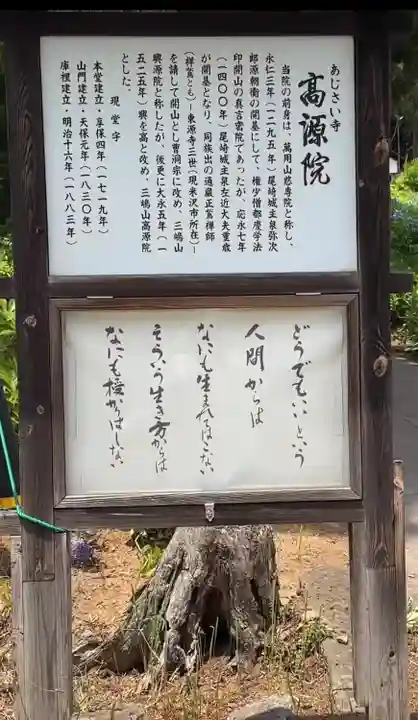 あじさい寺
高源院
当院の前身は、萬用山慈専院と称し、
永仁三年(一二九五年)尾崎城主泉弥次
郎源朝衡の開基にして、権少僧都慶学法
印開山の真言密院であったが、応永七年
(一四〇〇年)尾崎城主泉左近大夫重歳
が開基となり、同族出の通巌正鷟禅師
(禅鷟とも)―東源寺三世(現米沢市所在)―
を請して開山とし曹洞宗に改め、三嶋山
興源院と称したが、後更に大永五年(一
五二五年)興を高と改め、三嶋山高源院
とした。
現堂宇
本堂建立・享保四年(一七一九年)
山門建立・天保元年(一八三〇年)
庫裡建立・明治十六年(一八八三年)
どうでもいいという
人間からは
なにも生まれてはこない
そういう生き方からは
なにも授からはしない